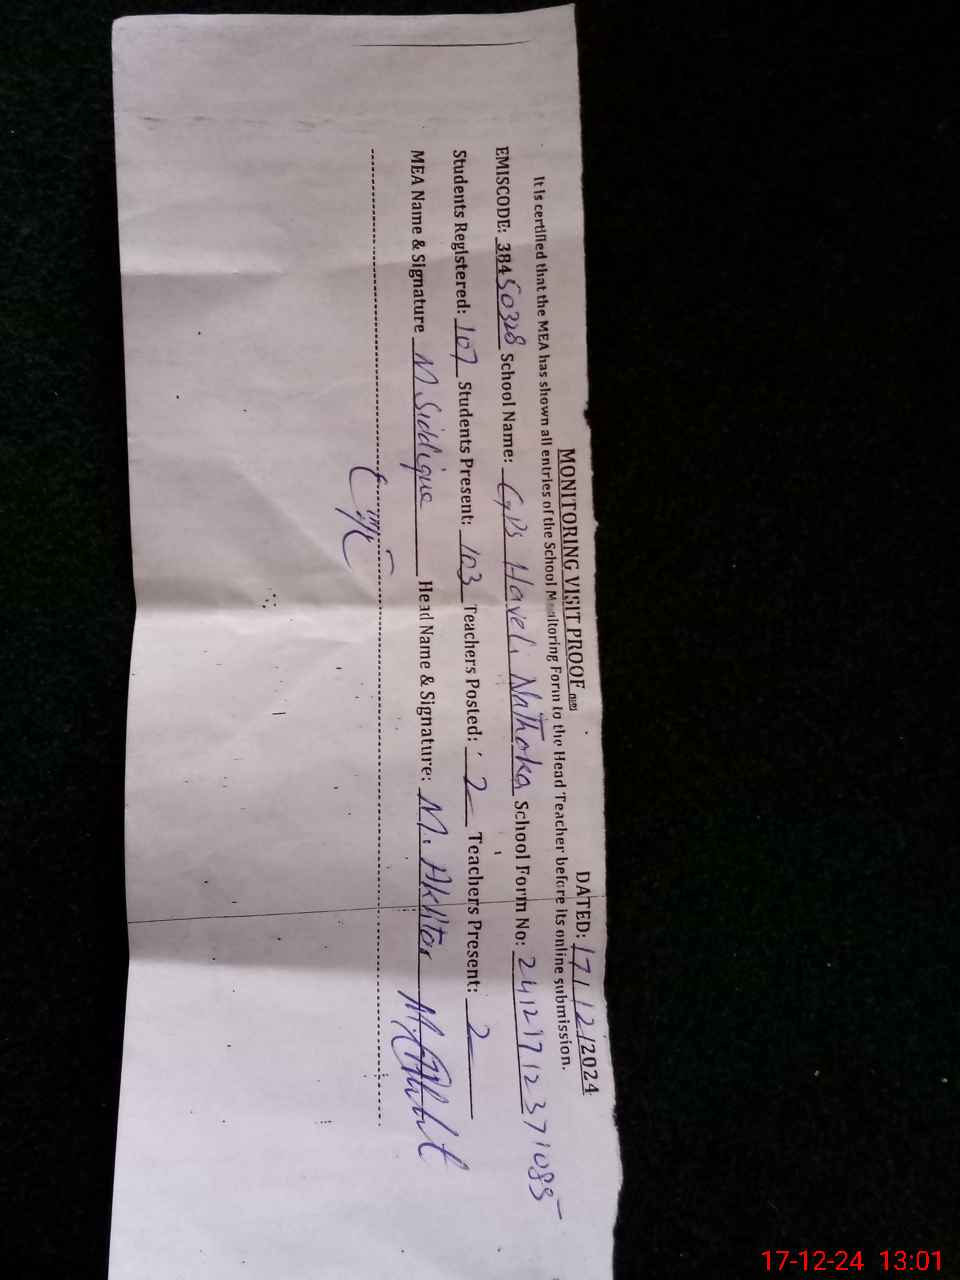 MONITORING VISIT PROOF
DATED: 17/12/2024
It is certified that the MEA has shown all entries of the School Monitoring Form to the Head Teacher before its online submission.
EMISCODE: 38450328 School Name: GPS Haveli Nathoka School Form No: 24121712371085
Students Registered: 107 Students Present: 103 Teachers Posted: 2 Teachers Present: 2
MEA Name & Signature M. Siddique Head Name & Signature: M. Akhtar
17-12-24 13:01